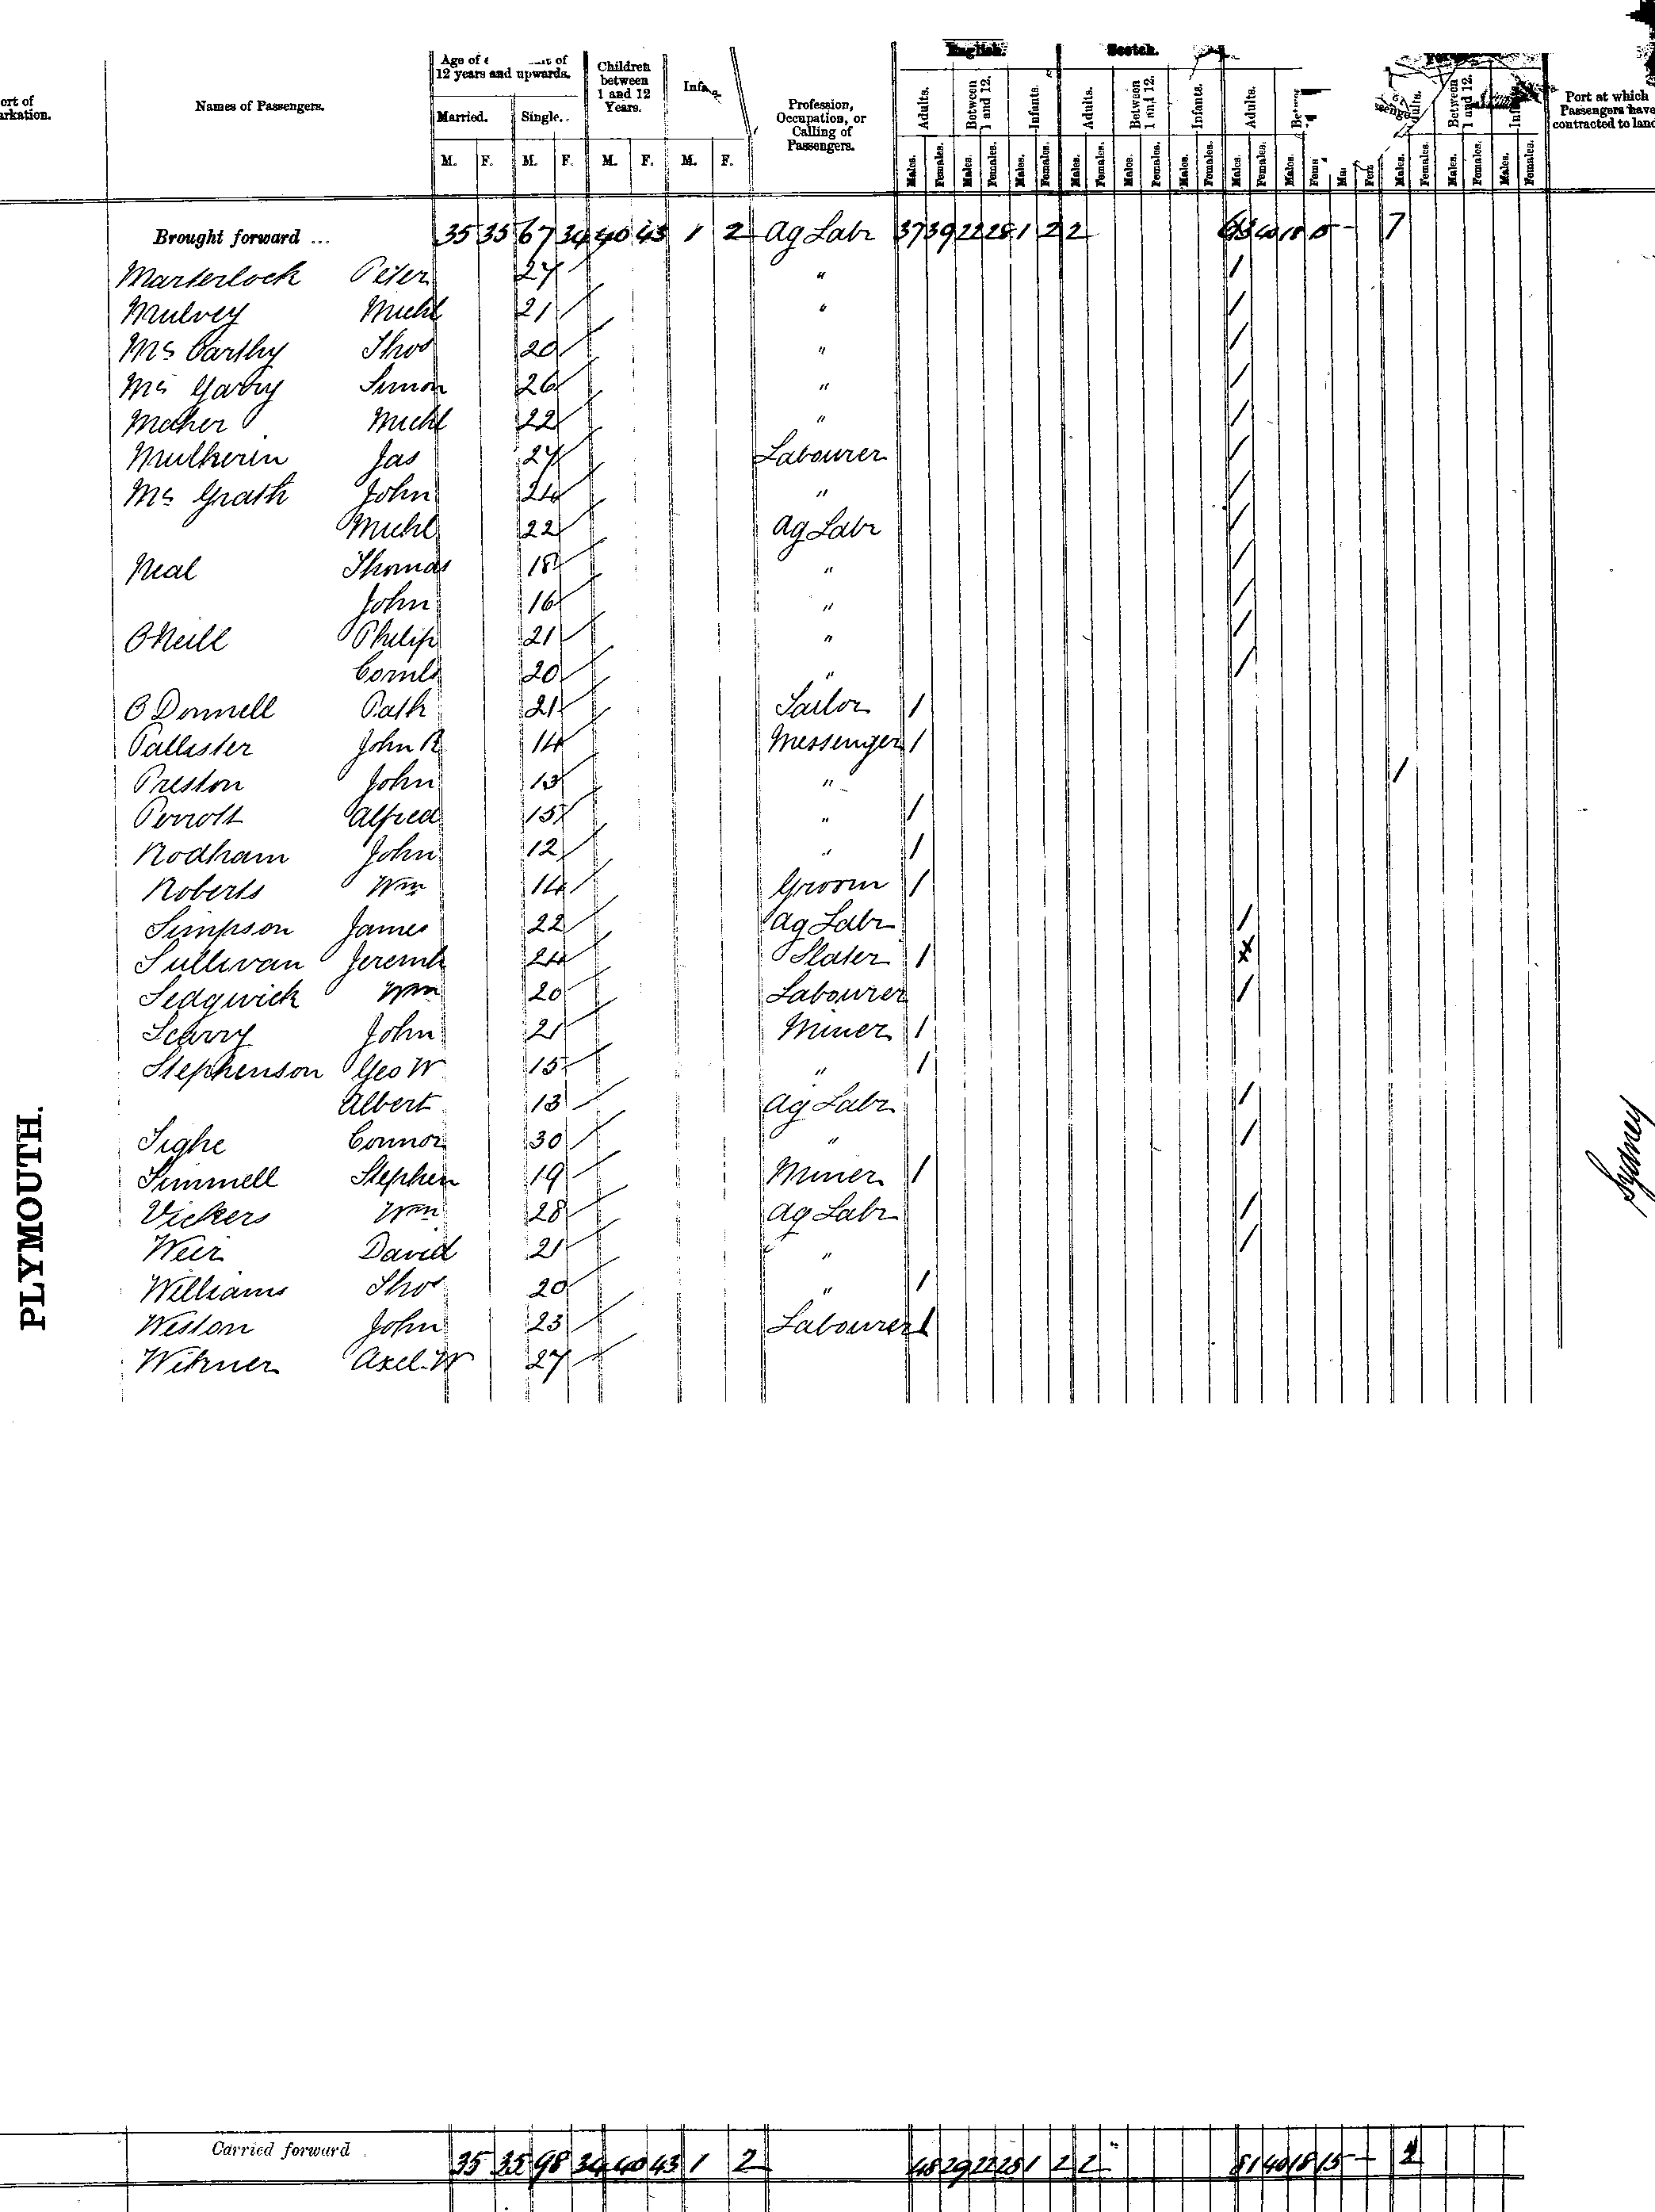 ort of
arkation.
Names of Passengers.
Age of of
12 years and upwards.
Married. Single.
M. F. M. F.
Children
between
1 and 12
Years.
M. F.
M. F.
Profession,
Occupation, or
Calling of
Passengers.
English. Scotch.
Adults. Between 1 and 12. Infants. Adults. Between 1 and 12. Infants. Adults. Between 1 and 12.
Males. Females. Males. Females. Males. Females. Males. Females. Males. Females. Males. Females. Males. Females. Males. Males. Females. Males. Females. Males. Females.
Port at which
Passengers have
contracted to land
Brought forward ... 35 35 67 34 40 43 1 2 Ag Labr 37 39 22 28 1 2 2 7
Marterlock Peter 27 "
Mulvey Michl 21 "
McCarthy Thos 20 "
McGarry Simon 26 "
Maher Michl 22 "
Mulkerin Jas 27 Labourer
McGrath John 24 "
Michl 22 Ag Labr
Neal Thomas 18 "
John 16 "
O'Neill Philip 21 "
Cornls 20 "
O'Donnell Patk 21 Sailor 1
Pallister John R 14 Messenger 1
Preston John 13 "
Perrott Alfred 15 " 1
Rodham John 12 " 1
Roberts Wm 14 Groom 1
Simpson James 22 Ag Labr
Sullivan Jeremh 24 Slater 1
Sedgwick Wm 20 Labourer
Scarry John 21 Miner 1
Stephenson Geo W 15 " 1
Albert 13 Ag Labr
Tighe Connor 30 "
Timmell Stephen 19 Miner 1
Vickers Wm 28 Ag Labr
Weir David 21 "
Williams Thos 20 " 1
Weston John 23 Labourer 1
Witzner Axel. W 27
PLYMOUTH.
Sydney
Carried forward 35 35 98 34 40 43 1 2 48 29 22 28 1 2 2 81 40 18 15 -